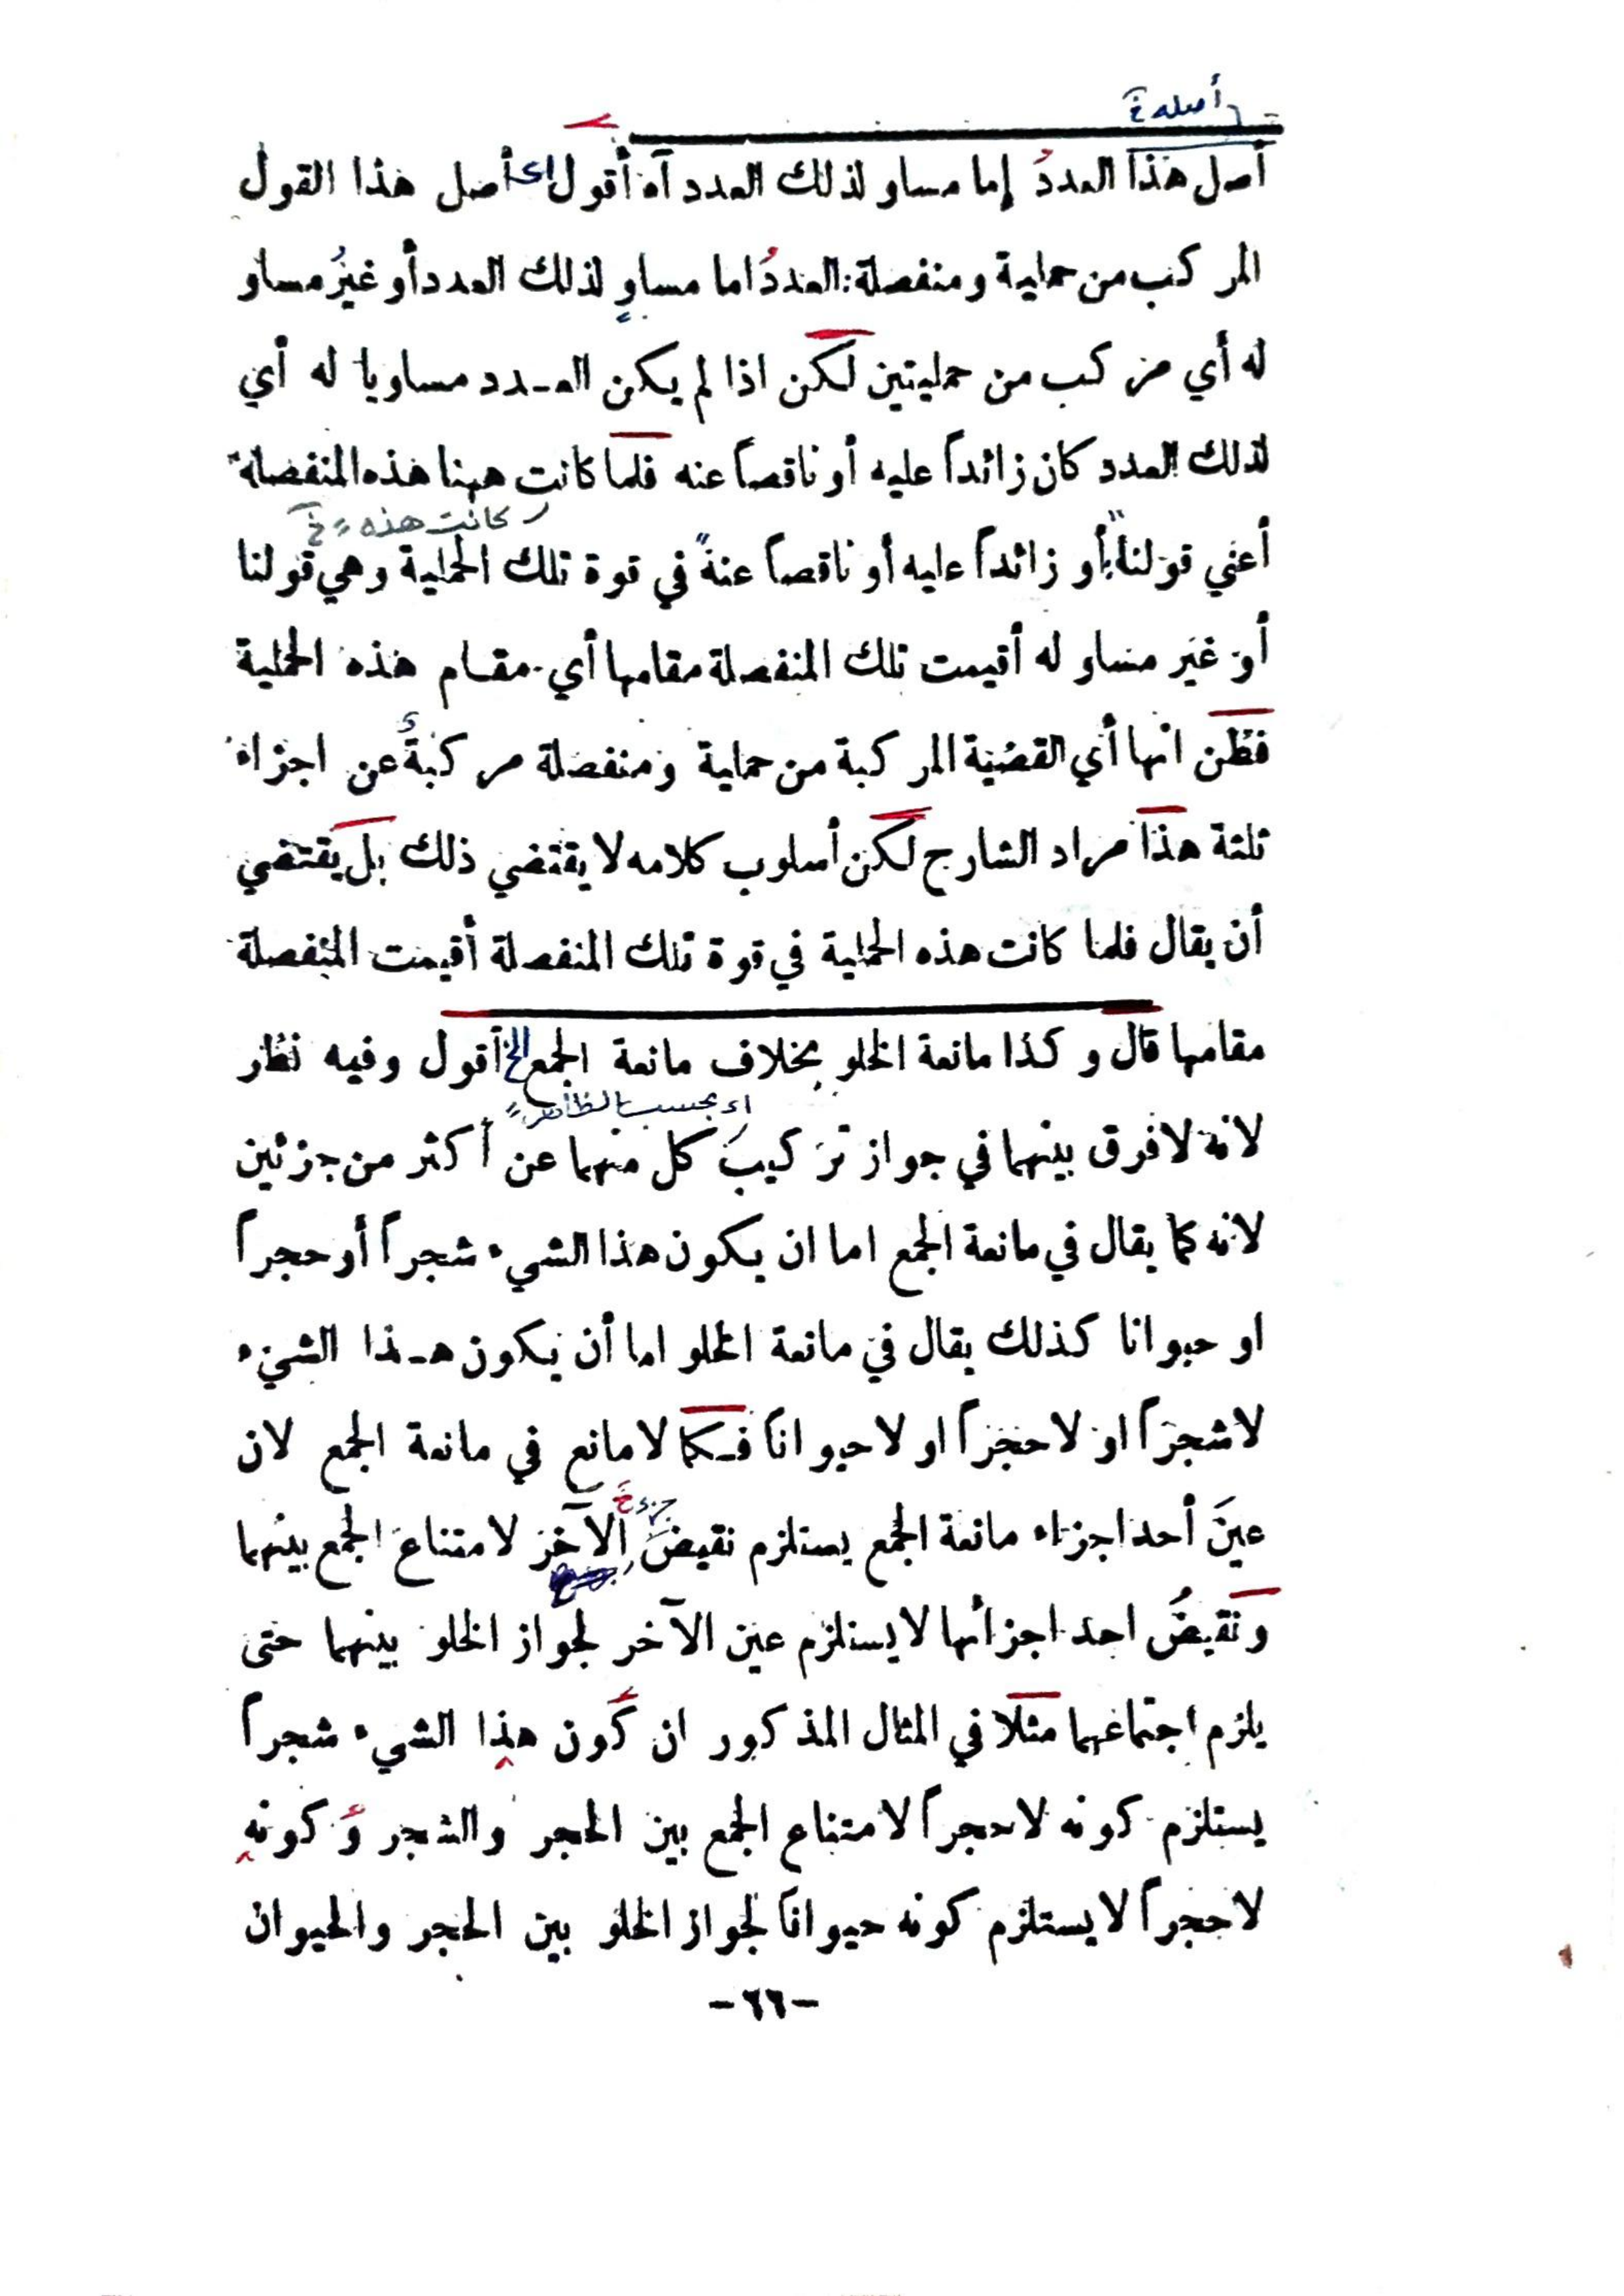 أصله خ
أصل هذا العددُ إما مساو لذلك العدد آه أقول اي أصل هذا القول
المركب من حملية ومنفصلة: العددُ اما مساوٍ لذلك العدد أو غيرُ مساو
له أي مركب من حمليتين لكن اذا لم يكن العـدد مساويا له أي
لذلك العدد كان زائداً عليه أو ناقصاً عنه فلما كانت ههنا هذه المنفصلة
كانت هذه خ
أعني قولنا "أو زائداً عليه أو ناقصاً عنه" في قوة تلك الحملية وهي قولنا
أو غير مساو له أقيمت تلك المنفصلة مقامها أي مقام هذه الحملية
فظُن انها أي القضية المركبة من حملية ومنفصلة مركبةٌ عن اجزاء
ثلثة هذا مراد الشارح لكن أسلوب كلامه لا يقتضي ذلك بل يقتضي
أن يقال فلما كانت هذه الحملية في قوة تلك المنفصلة أقيمت المنفصلة
مقامها قال وكذا مانعة الخلو بخلاف مانعة الجمع الخ أقول وفيه نظر
اى بحسب الظاهر
لانه لا فرق بينهما في جواز تركيب كل منهما عن أكثر من جزئين
لانه كما يقال في مانعة الجمع اما ان يكون هذا الشيء شجراً أو حجراً
او حيوانا كذلك يقال في مانعة الخلو اما أن يكون هـذا الشيء
لا شجراً او لا حجراً او لا حيواناً فـكما لا مانع في مانعة الجمع لان
جزء خ
عينَ أحد اجزاء مانعة الجمع يستلزم نقيضَ الآخر لامتناع الجمع بينهما
ونقيضُ احد اجزائها لا يستلزم عين الآخر لجواز الخلو بينهما حتى
يلزم اجتماعهما مثلا في المثال المذكور ان كَون هذا الشيء شجراً
يستلزم كونه لا حجراً لامتناع الجمع بين الحجر والشجر وَ كونهِ
لا حجراً لا يستلزم كونه حيواناً لجواز الخلو بين الحجر والحيوان
-٦٦-